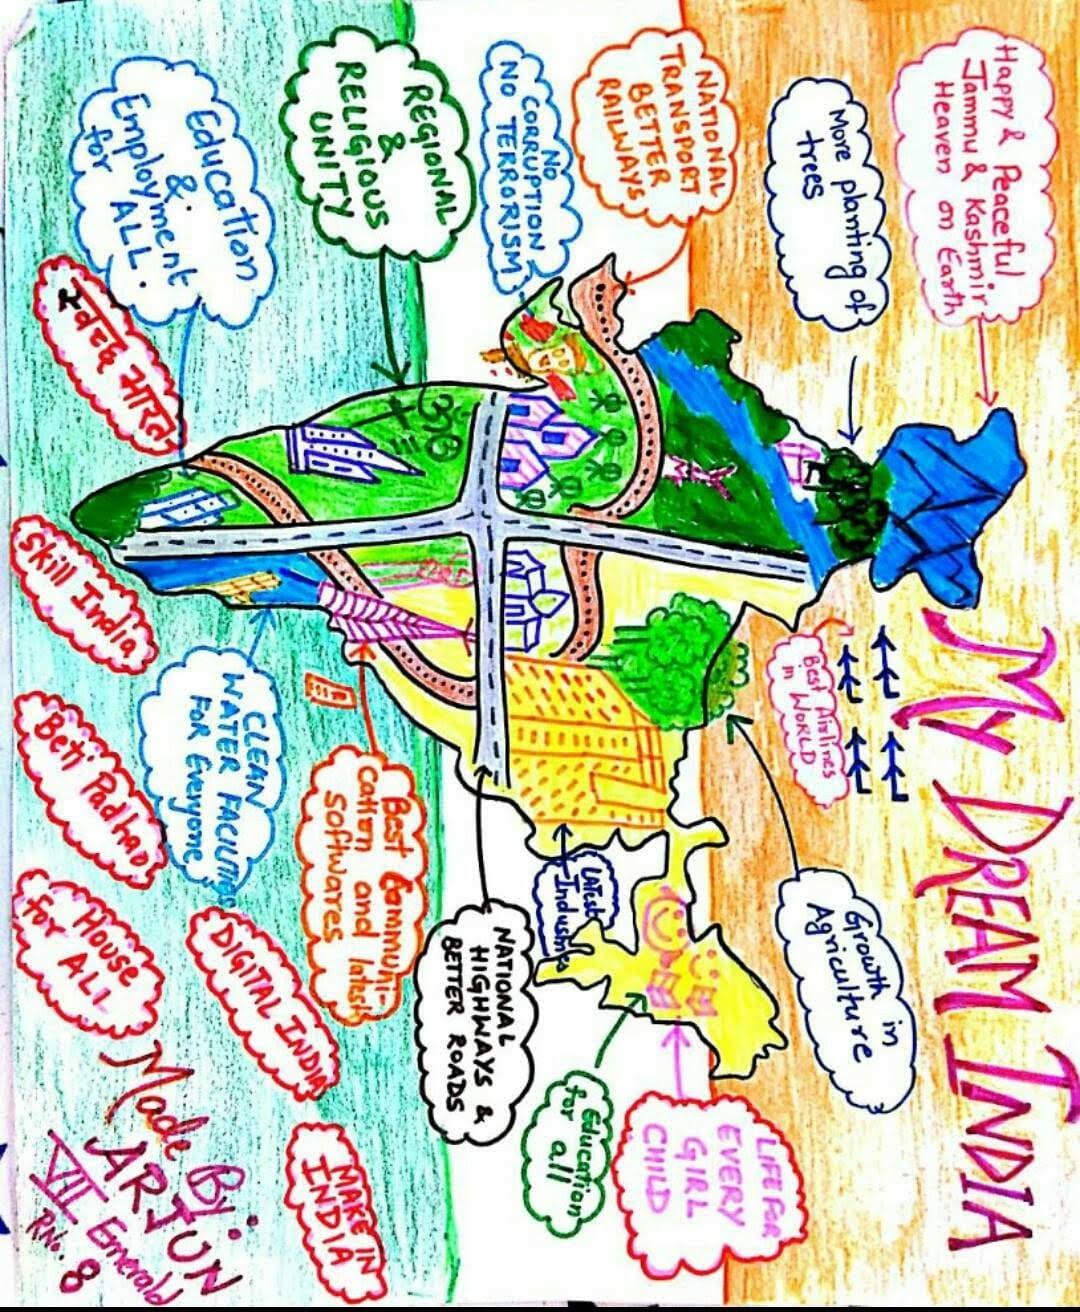 MY DREAM INDIA
Happy & Peaceful
Jammu & Kashmir
Heaven on Earth
More planting of
trees
Best Airlines
in WORLD
Growth in
Agriculture
LIFE FOR
EVERY
GIRL
CHILD
NATIONAL
TRANSPORT
BETTER
RAILWAYS
LATEST
Industries
Education
for all
NO
CORRUPTION
NO TERRORISM
NATIONAL
HIGHWAYS &
BETTER ROADS
REGIONAL
&
RELIGIOUS
UNITY
ॐ
Best Communi-
cation and latest
softwares
MAKE IN
INDIA
DIGITAL INDIA
CLEAN
WATER FACILITIES
FOR Everyone
Education
&
Employment
for ALL.
स्वच्छ भारत
Skill India
Beti Padhao
House
for ALL
Made By:
ARJUN
VII Emerald
R.No. 8